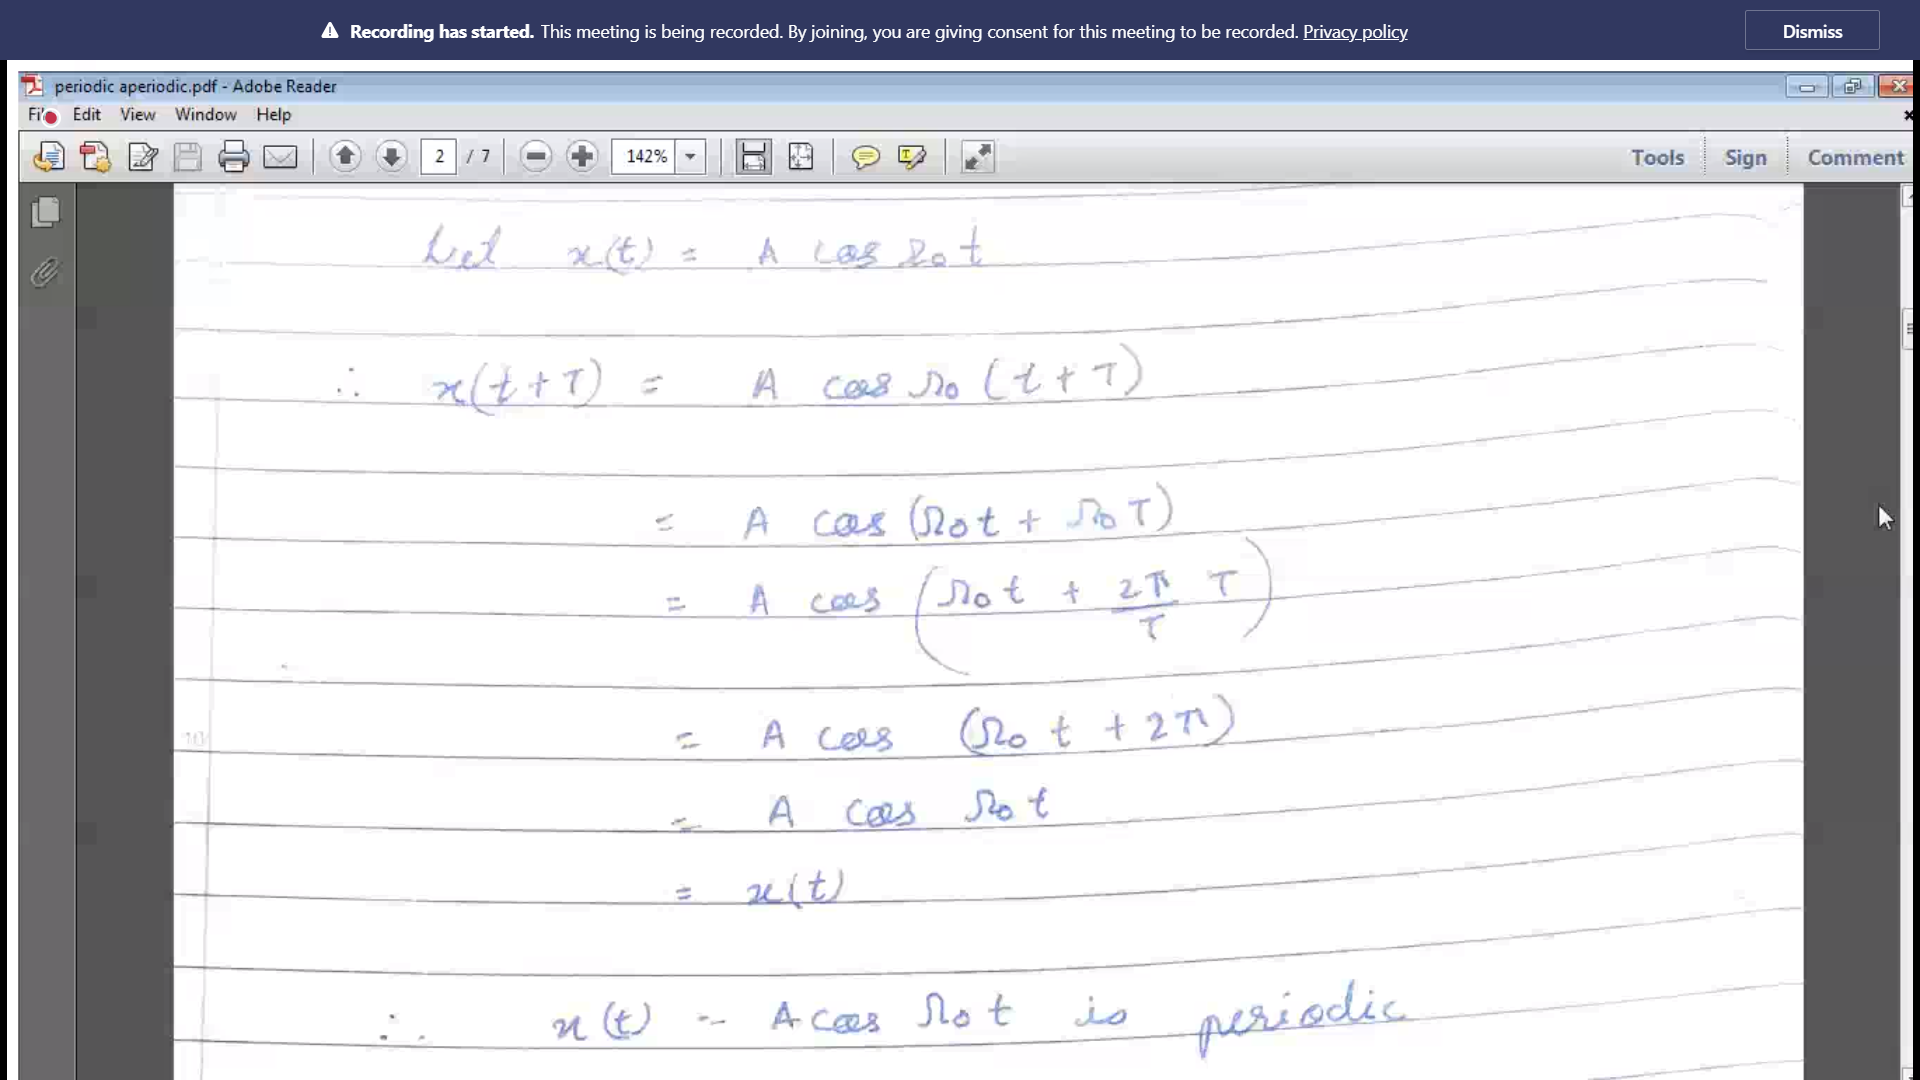 Recording has started. This meeting is being recorded. By joining, you are giving consent for this meeting to be recorded. Privacy policy Dismiss
periodic aperiodic.pdf - Adobe Reader
Edit View Window Help
2 / 7 142% Tools Sign Comment
Let x(t) = A cos Ω₀ t
∴ x(t+T) = A cos Ω₀ (t+T)
= A cos (Ω₀t + Ω₀T)
= A cos (Ω₀t + 2π/T T)
= A cos (Ω₀ t + 2π)
= A cos Ω₀t
= x(t)
∴ x(t) = A cos Ω₀t is periodic